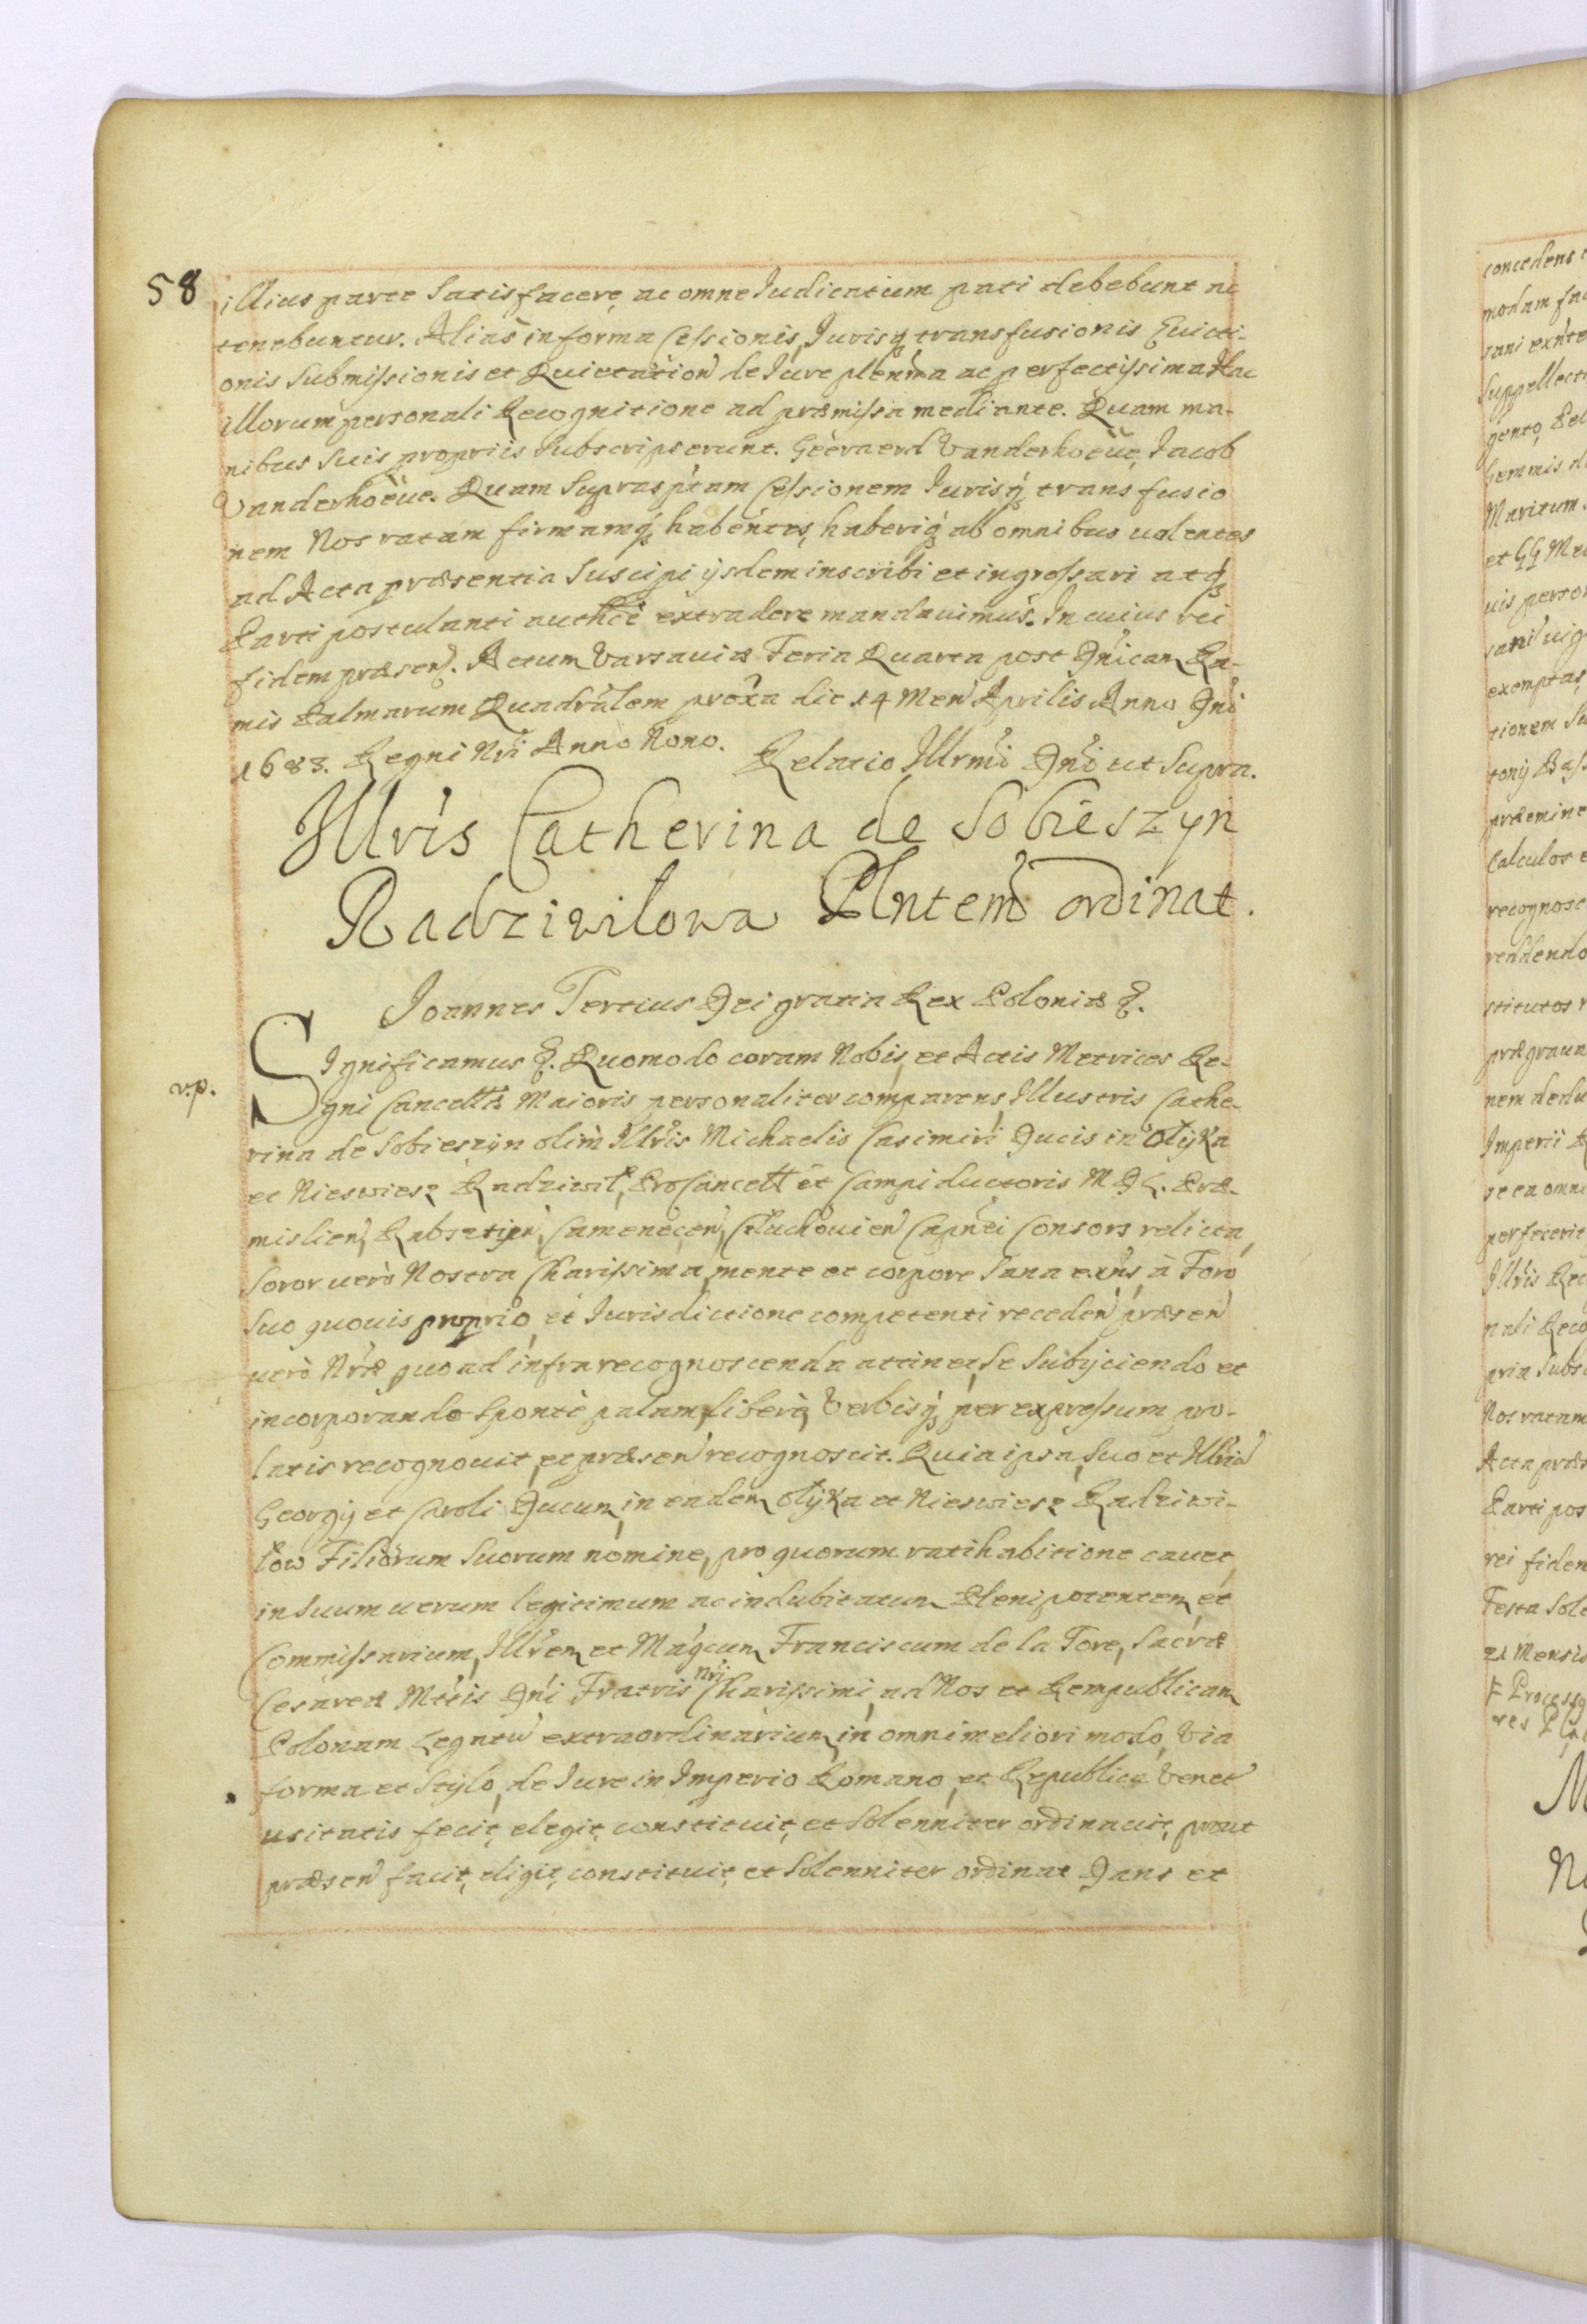 58
illius parte Satisfacere, ac omne Iudicatum pati debebunt ac
tenebuntur. Alias in forma Cessionis, Iurisq transfusionis Euicti-
onis Submissionis et Quietation̄ de Iure plen̄ma ac perfectissima Hac
illorum personali Recognitione ad præmissa mediante. Quam ma-
nibus suis propriis Subscripserunt. Geeraerd Vanderhoeue, Iacob
Vanderhoeue. Quam Suprasp̄tam Cessionem Iurisq transfusio
nem Nos ratam firmamq habentes, haberiq ab omnibus uolentes
ad Acta præsentia Suscipi ijsdem inscribi et ingrossari atq
Parti postulanti auth̄ce extradere mandauimus. In cuius rei
fidem præsen̄. Actum Varsauiæ Feria Quarta post Dn̄icam Ra-
mis Palmarum Quadr̄alem prox̄a die 14 Men̄ Aprilis Anno Dn̄i
1683. Regni Nr̄i Anno Nono. Relatio Illrm̄i Dn̄i ut Supra.
Illris Catherina de Sobieszyn
Radziwilowa Plntem ordinat.
Ioannes Tertius Dei gratia Rex Poloniæ &.
v.p.
Significamus &. Quomodo coram Nobis, et Actis Metrices Re-
gni Cancellæ Maioris personaliter comparens, Illustris Cathe-
rina de Sobieszyn olim Illr̄is Michaelis Casimiri Ducis in Olyka
et Nieswiesz Radziwił, ProCancell et Campi ductoris M D L. Præ-
mislien, Rabsztijn, Camenecen, Człuchouien Capn̄ei Consors relicta,
Soror uerò Nostra Charissima, mente et corpore Sana exn̄s, à Foro
Suo quouis proprio, et Iurisdictione competenti receden̄ præsen̄
uerò Nr̄æ quoad infra recognoscenda attinet, Se Subijciendo et
incorporando Spontè palam, liberè, Verbisq per expressum pro-
latis recognouit, et præsen̄ recognoscit. Quia ipsa, Suo et Illriu̅
Georgij et Caroli Ducum, in eadem Olyka et Nieswiesz Radziwi-
łow Filiorum Suorum nomine, pro quorum ratihabitione cauet,
in Suum uerum legitimum ac indubitatum Plenipotentem, et
Commissarium, Illr̄em et Mag̅cum Franciscum de la Tore, Sacræ
Cesareæ Mt̄tis Dn̄i Fratris nri Charissimi, ad Nos et Rempublicam
Polonam Legatu̅ extraordinarium, in omni meliori modo, via
forma et Stylo, de Iure in Imperio Romano, et Republica Venet̄
usitatis fecit, elegit, constituit, et Solenniter ordinauit, prout
præsen̄ facit, eligit, constituit, et Solenniter ordinat Dans et